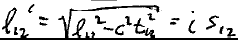 l₁₂' = √(l₁₂² - c²t₁₂²) = i s₁₂